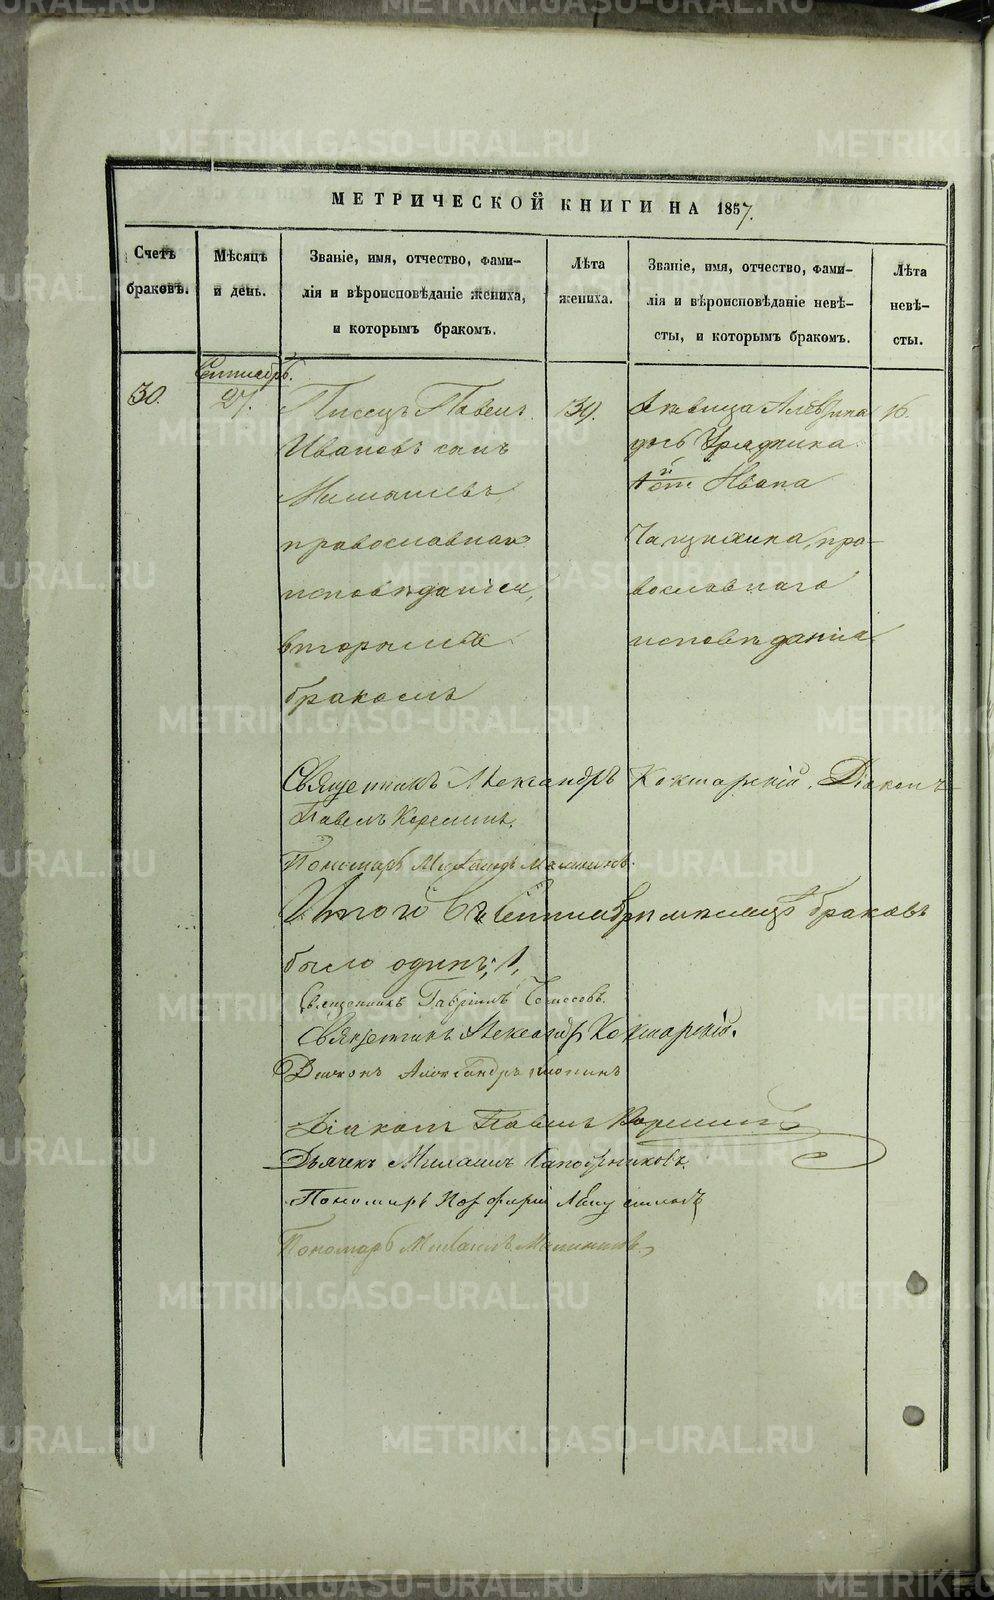 МЕТРИЧЕСКОЙ КНИГИ НА 1857.
Счетъ браковъ.
Мѣсяцъ и день.
Званіе, имя, отчество, фами-
лія и вѣроисповѣданіе жениха,
и которымъ бракомъ.
Лѣта
жениха.
Званіе, имя, отчество, фами-
лія и вѣроисповѣданіе невѣ-
сты, и которымъ бракомъ.
Лѣта
невѣ-
сты.
Сентябрь.
30.
27.
Писецъ Павелъ
Ивановъ сынъ
православнаго
исповѣданія,
вторымъ
бракомъ
39.
дѣвица
дочь Урядника
Ивана
пра-
вославнаго
исповѣданія
16.
Священникъ Александръ Кокшарскій. Діаконъ
Павелъ
Пономарь Михаилъ Малининъ.
Итого въ Сентябрѣ мѣсяцѣ браковъ
было одинъ, 1,
Священникъ Гавріилъ
Священникъ Александръ Кокшарскій.
Діаконъ Александръ
Діаконъ Павелъ
Дьячекъ Сапожниковъ
Пономарь Порфирій
Пономарь Михаилъ Малининъ
METRIKI.GASO-URAL.RU